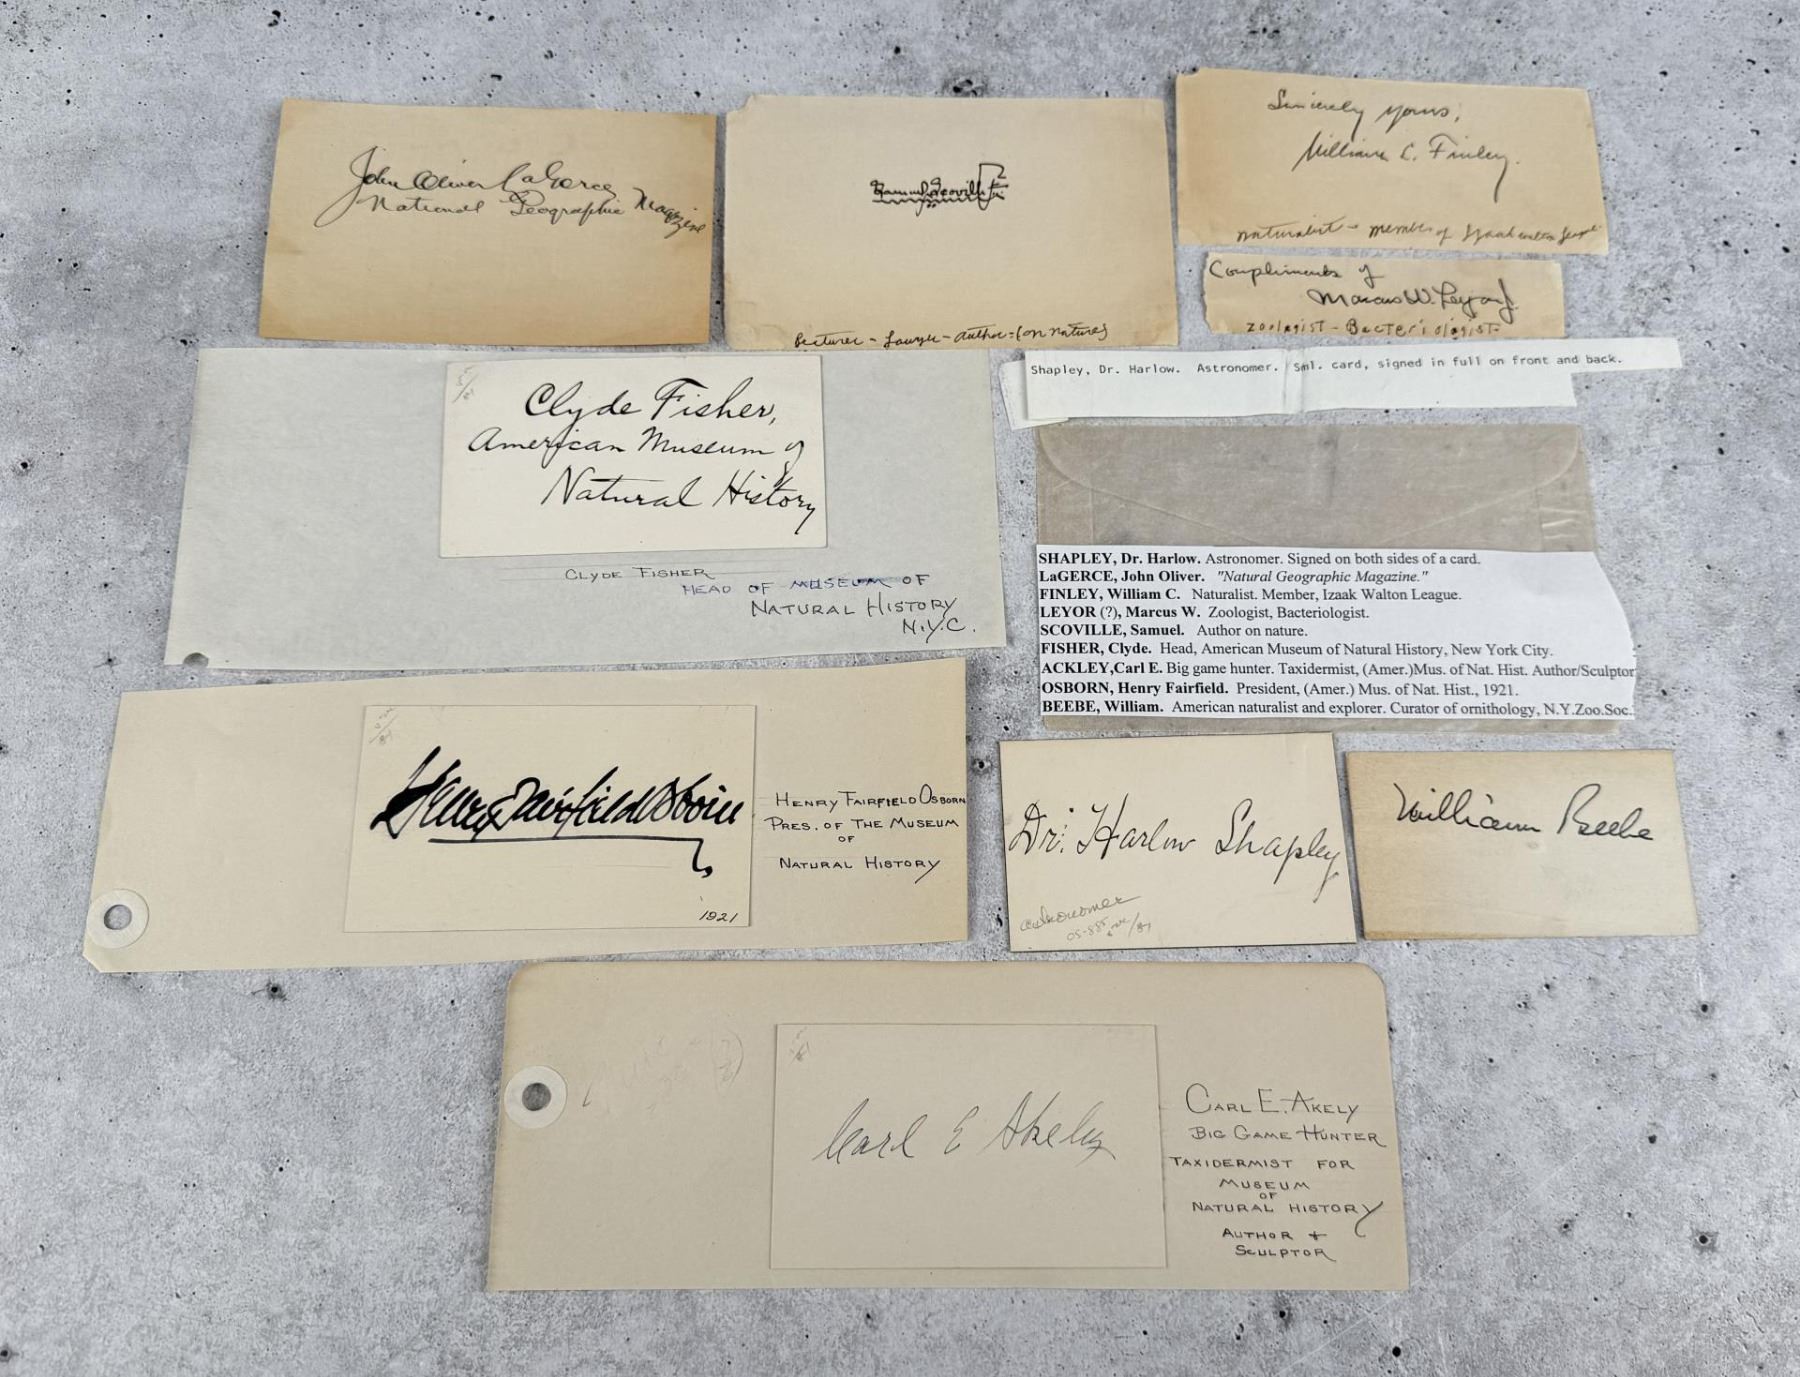 John Oliver LaGorce
National Geographic Magazine
Samuel Scoville Jr.
Lecturer - Lawyer - Author - (on nature)
Sincerely yours,
William L. Finley.
naturalist - member of Izaak walton League
Compliments of
Marcus W. Lyon Jr.
zoologist - Bacteriologist -
Shapley, Dr. Harlow. Astronomer. Sml. card, signed in full on front and back.
Clyde Fisher,
American Museum of
Natural History
CLYDE FISHER
HEAD OF MUSEUM OF
NATURAL HISTORY
N.Y.C.
SHAPLEY, Dr. Harlow. Astronomer. Signed on both sides of a card.
LaGERCE, John Oliver. "Natural Geographic Magazine."
FINLEY, William C. Naturalist. Member, Izaak Walton League.
LEYOR (?), Marcus W. Zoologist, Bacteriologist.
SCOVILLE, Samuel. Author on nature.
FISHER, Clyde. Head, American Museum of Natural History, New York City.
ACKLEY,Carl E. Big game hunter. Taxidermist, (Amer.)Mus. of Nat. Hist. Author/Sculptor
OSBORN, Henry Fairfield. President, (Amer.) Mus. of Nat. Hist., 1921.
BEEBE, William. American naturalist and explorer. Curator of ornithology, N.Y.Zoo.Soc.
Henry Fairfield Osborn
1921
HENRY FAIRFIELD OSBORN
PRES. OF THE MUSEUM
OF
NATURAL HISTORY
Dr. Harlow Shapley
astronomer
OS-885
William Beebe
Carl E Akeley
CARL E. AKELY
BIG GAME HUNTER
TAXIDERMIST FOR
MUSEUM
OF
NATURAL HISTORY
AUTHOR +
SCULPTOR